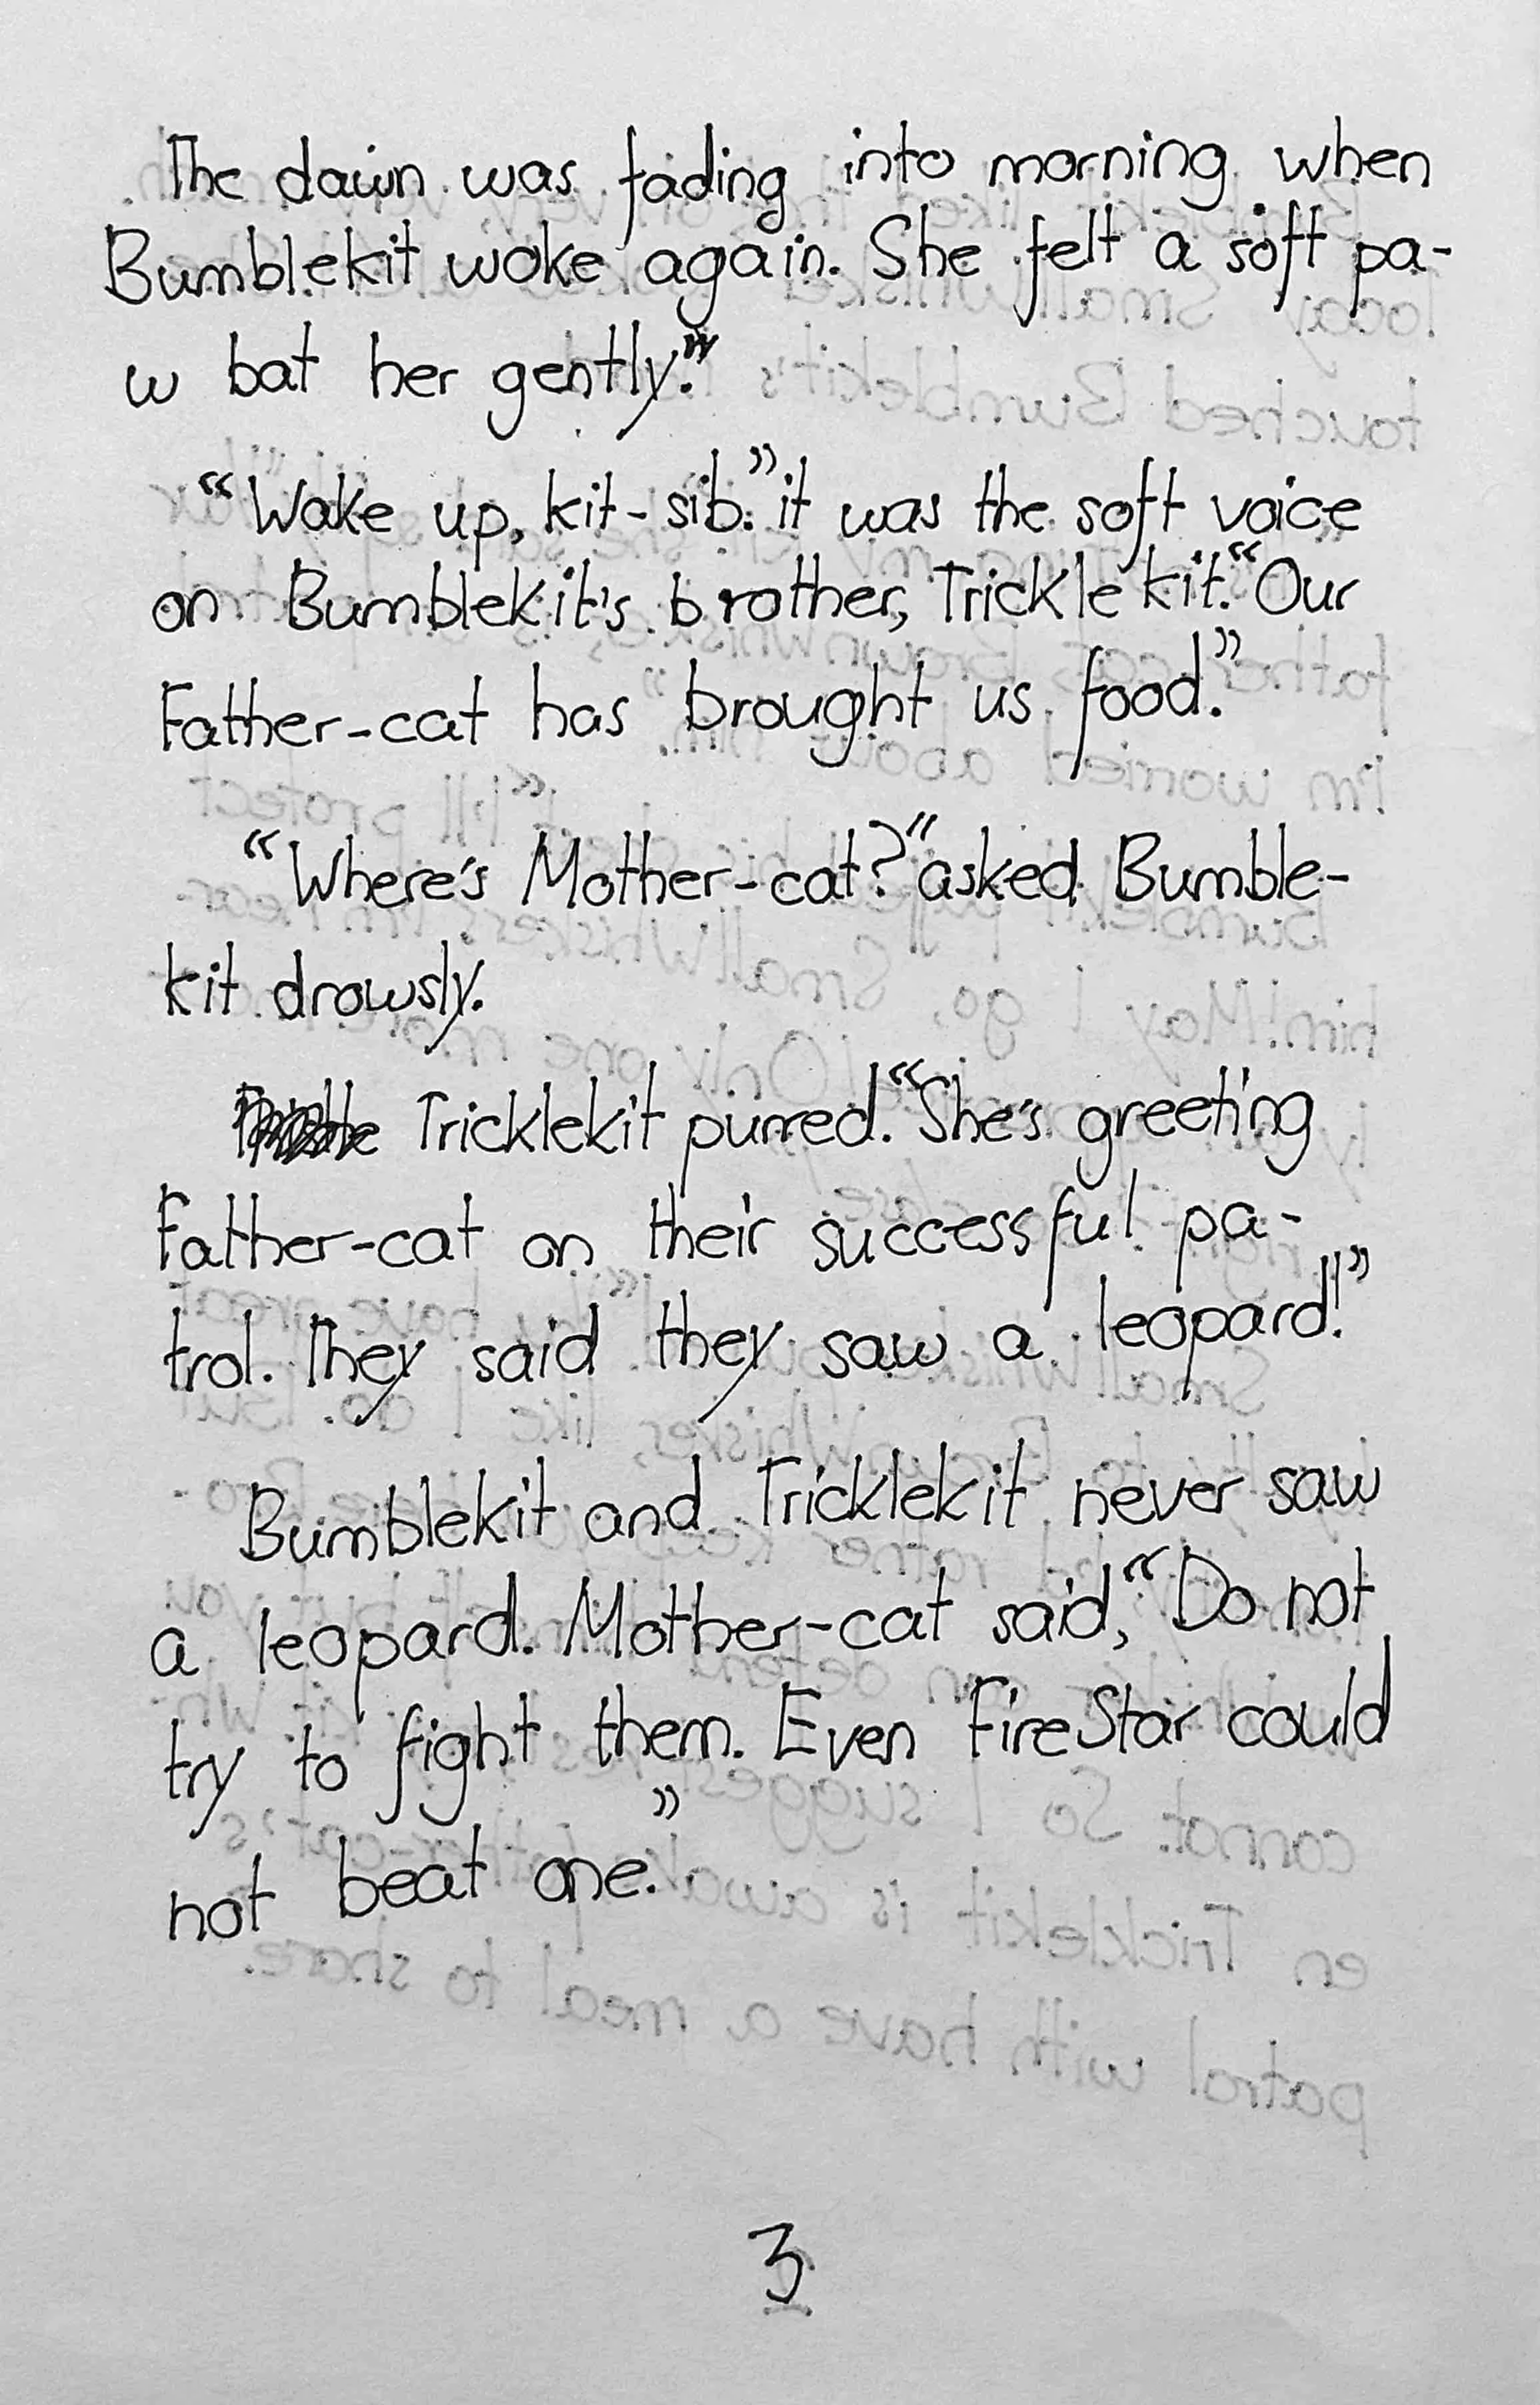 The dawn was fading into morning when
Bumblekit woke again. She felt a soft pa-
w bat her gently."
"Wake up, kit-sib." it was the soft voice
on Bumblekit's brother, Tricklekit. "Our
Father-cat has brought us food."
"Where's Mother-cat?" asked Bumble-
kit drowsly.
Tricklekit purred. "She's greeting
Father-cat on their successful pa-
trol. They said they saw a leopard!"
Bumblekit and Tricklekit never saw
a leopard. Mother-cat said, "Do not
try to fight them. Even FireStar could
not beat one."
3